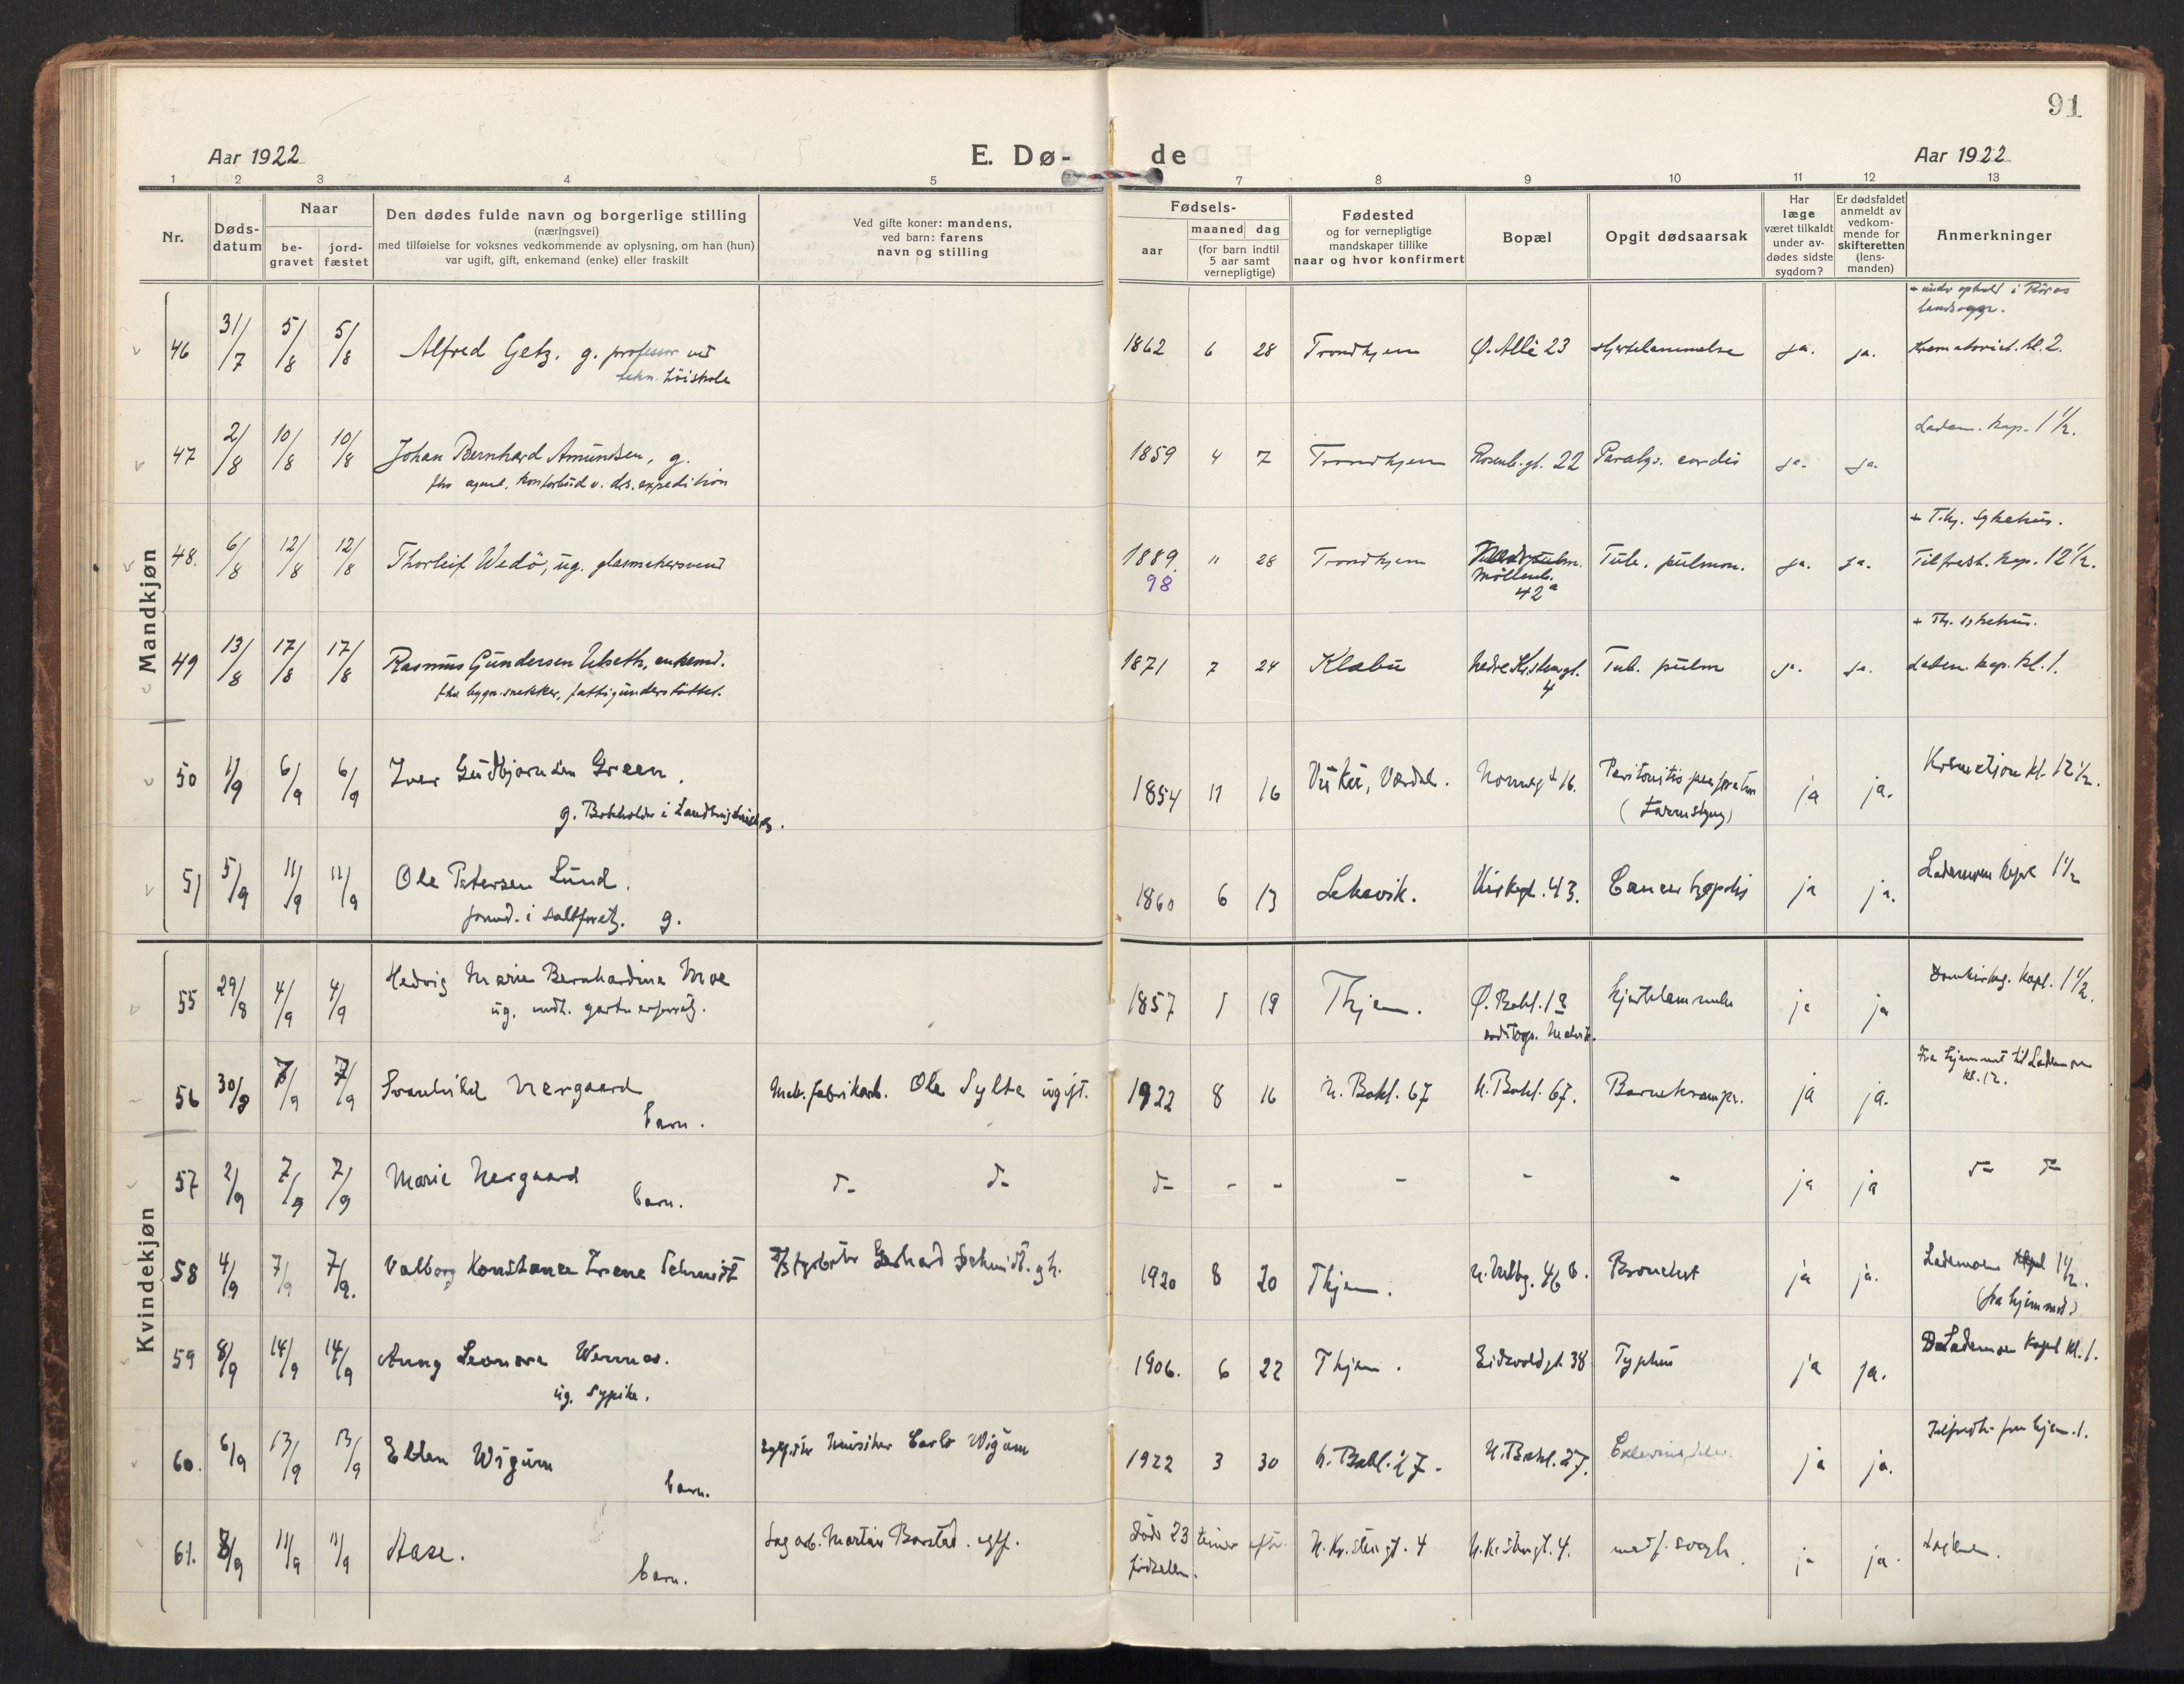 91
Aar 1922
E. Dø-
de
Aar 1922
1 2 3 4 5 7 8 9 10 11 12 13
Nr.
Døds-
datum
Naar
be-
gravet
jord-
fæstet
Den dødes fulde navn og borgerlige stilling
(næringsvei)
med tilføielse for voksnes vedkommende av oplysning, om han (hun)
var ugift, gift, enkemand (enke) eller fraskilt
Ved gifte koner: mandens,
ved barn: farens
navn og stilling
Fødsels-
aar
maaned dag
(for barn indtil
5 aar samt
vernepligtige)
Fødested
og for vernepligtige
mandskaper tillike
naar og hvor konfirmert
Bopæl
Opgit dødsaarsak
Har
læge
været tilkaldt
under av-
dødes sidste
sygdom?
Er dødsfaldet
anmeldt av
vedkom-
mende for
skifteretten
(lens-
manden)
Anmerkninger
Mandkjøn
+ under ophold i Röros
landsogn.
46 31/7 5/8 5/8 Alfred Getz. g. professor ved 1862 6 28 Trondhjem Ø. Allé 23 Hjertelammelse ja. ja. Krematoriet. kl. 2.
tekn. höiskole
Ladem. kap. 1 1/2.
47 2/8 10/8 10/8 Johan Bernhard Amundsen, g. 1859 4 7 Trondhjem Rosenb. gt. 22 Paralys. cordis ja. ja.
fhv. kontorbud v. ds. expedition
+ T.hj. sykehus.
48. 6/8 12/8 12/8 Thorleif Wedö, ug. glasmestersvend 1889. 11 28 Trondhjem Tub. pulmon. ja. ja. Tilfredsh. kap. 12 1/2.
98 Möllenb.
42a
+ Th. sykehus.
49 13/8 17/8 17/8 Rasmus Gundersen Ulseth, enkemd. 1871 7 24 Klæbu Nedre Kr.stensgt. Tub. pulm ja. ja. Ladem. kap. kl. 1.
4
fhv. bygn. snekker, fattigunderstöttet.
50 1/9 6/9 6/9 Iver Gudbjørnsen Green. 1854 11 16 Vuku, Værdal. Nonnegt 16. Peritonitis perforativ ja ja. Kremation kl. 12 1/2.
g. Bokholder i
51 5/9 11/9 11/9 Ole Petersen Lund. 1860 6 13 Leksvik. Kirkegt. 43. Cancer hepatis ja ja. Lademoen kapel 1 1/2
formd. i saltforretn. g.
Kvindekjøn
55 29/8 4/9 4/9 Hedvig Marie Bernhardine Moe 1857 5 19 Thjem. Ø. Bakl. 1a Hjertelammelse ja ja Domkirkeg. kapl. 1 1/2.
ug. indh. gartnerforretn.
56 30/8 7/9 7/9 Svanhild Nergaard Mek. fabrikarb. Ole Sylte ugift. 1922 8 16 N. Bakl. 67 N. Bakl. 67. Barnekramper. ja ja. Fra hjemmet til Lademoen
kl. 12.
barn.
57 2/9 7/9 7/9 Marie Nergaard do do do - - - - - ja ja do do
barn.
58 4/9 7/9 7/9. Valborg Konstance Irene Schmidt Gerhard Schmidt. gh. 1920 8 20 Thjem. 46 b. Bronchit ja ja. Lademoen kapel 1 1/2.
(fra hjemmet)
59 8/9 14/9 14/9 Anny Leonora Wennes. 1906. 6 22 Thjem. Eidsvoldgt. 38 Typhus ja ja. Lademoen kapel kl. 1.
ug. sypike.
60. 6/9 13/9 13/9 Ellen Wigum Musiker Carlo Wigum 1922 3 30 N. Bakl. 27. N. Bakl. 27. ja ja. Tilfredsh. fra hjem. 1.
barn.
61. 8/9 11/9 11/9 Aase. Sagarb. Martin Barstad. döde 23 timer eft. N. Kr.stensgt. 4 N. Kr.stensgt. 4. medf. svagh. ja ja.
födselen.
barn.